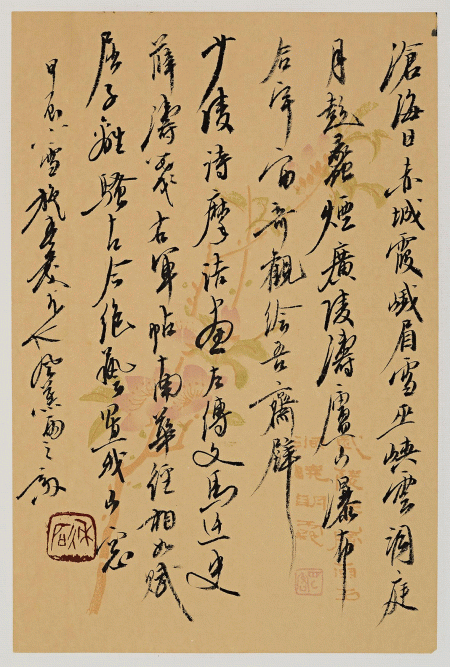 滄海日赤城霞峨眉雪巫峽雲洞庭
月彭蠡煙廣陵濤廬山瀑布
合宇宙奇觀繪吾齋壁
少陵詩摩詰畫左傳文馬迁史
薛濤箋右軍帖南華經相如賦
屈子離騷古今絕藝置我山窗
甲申小雪